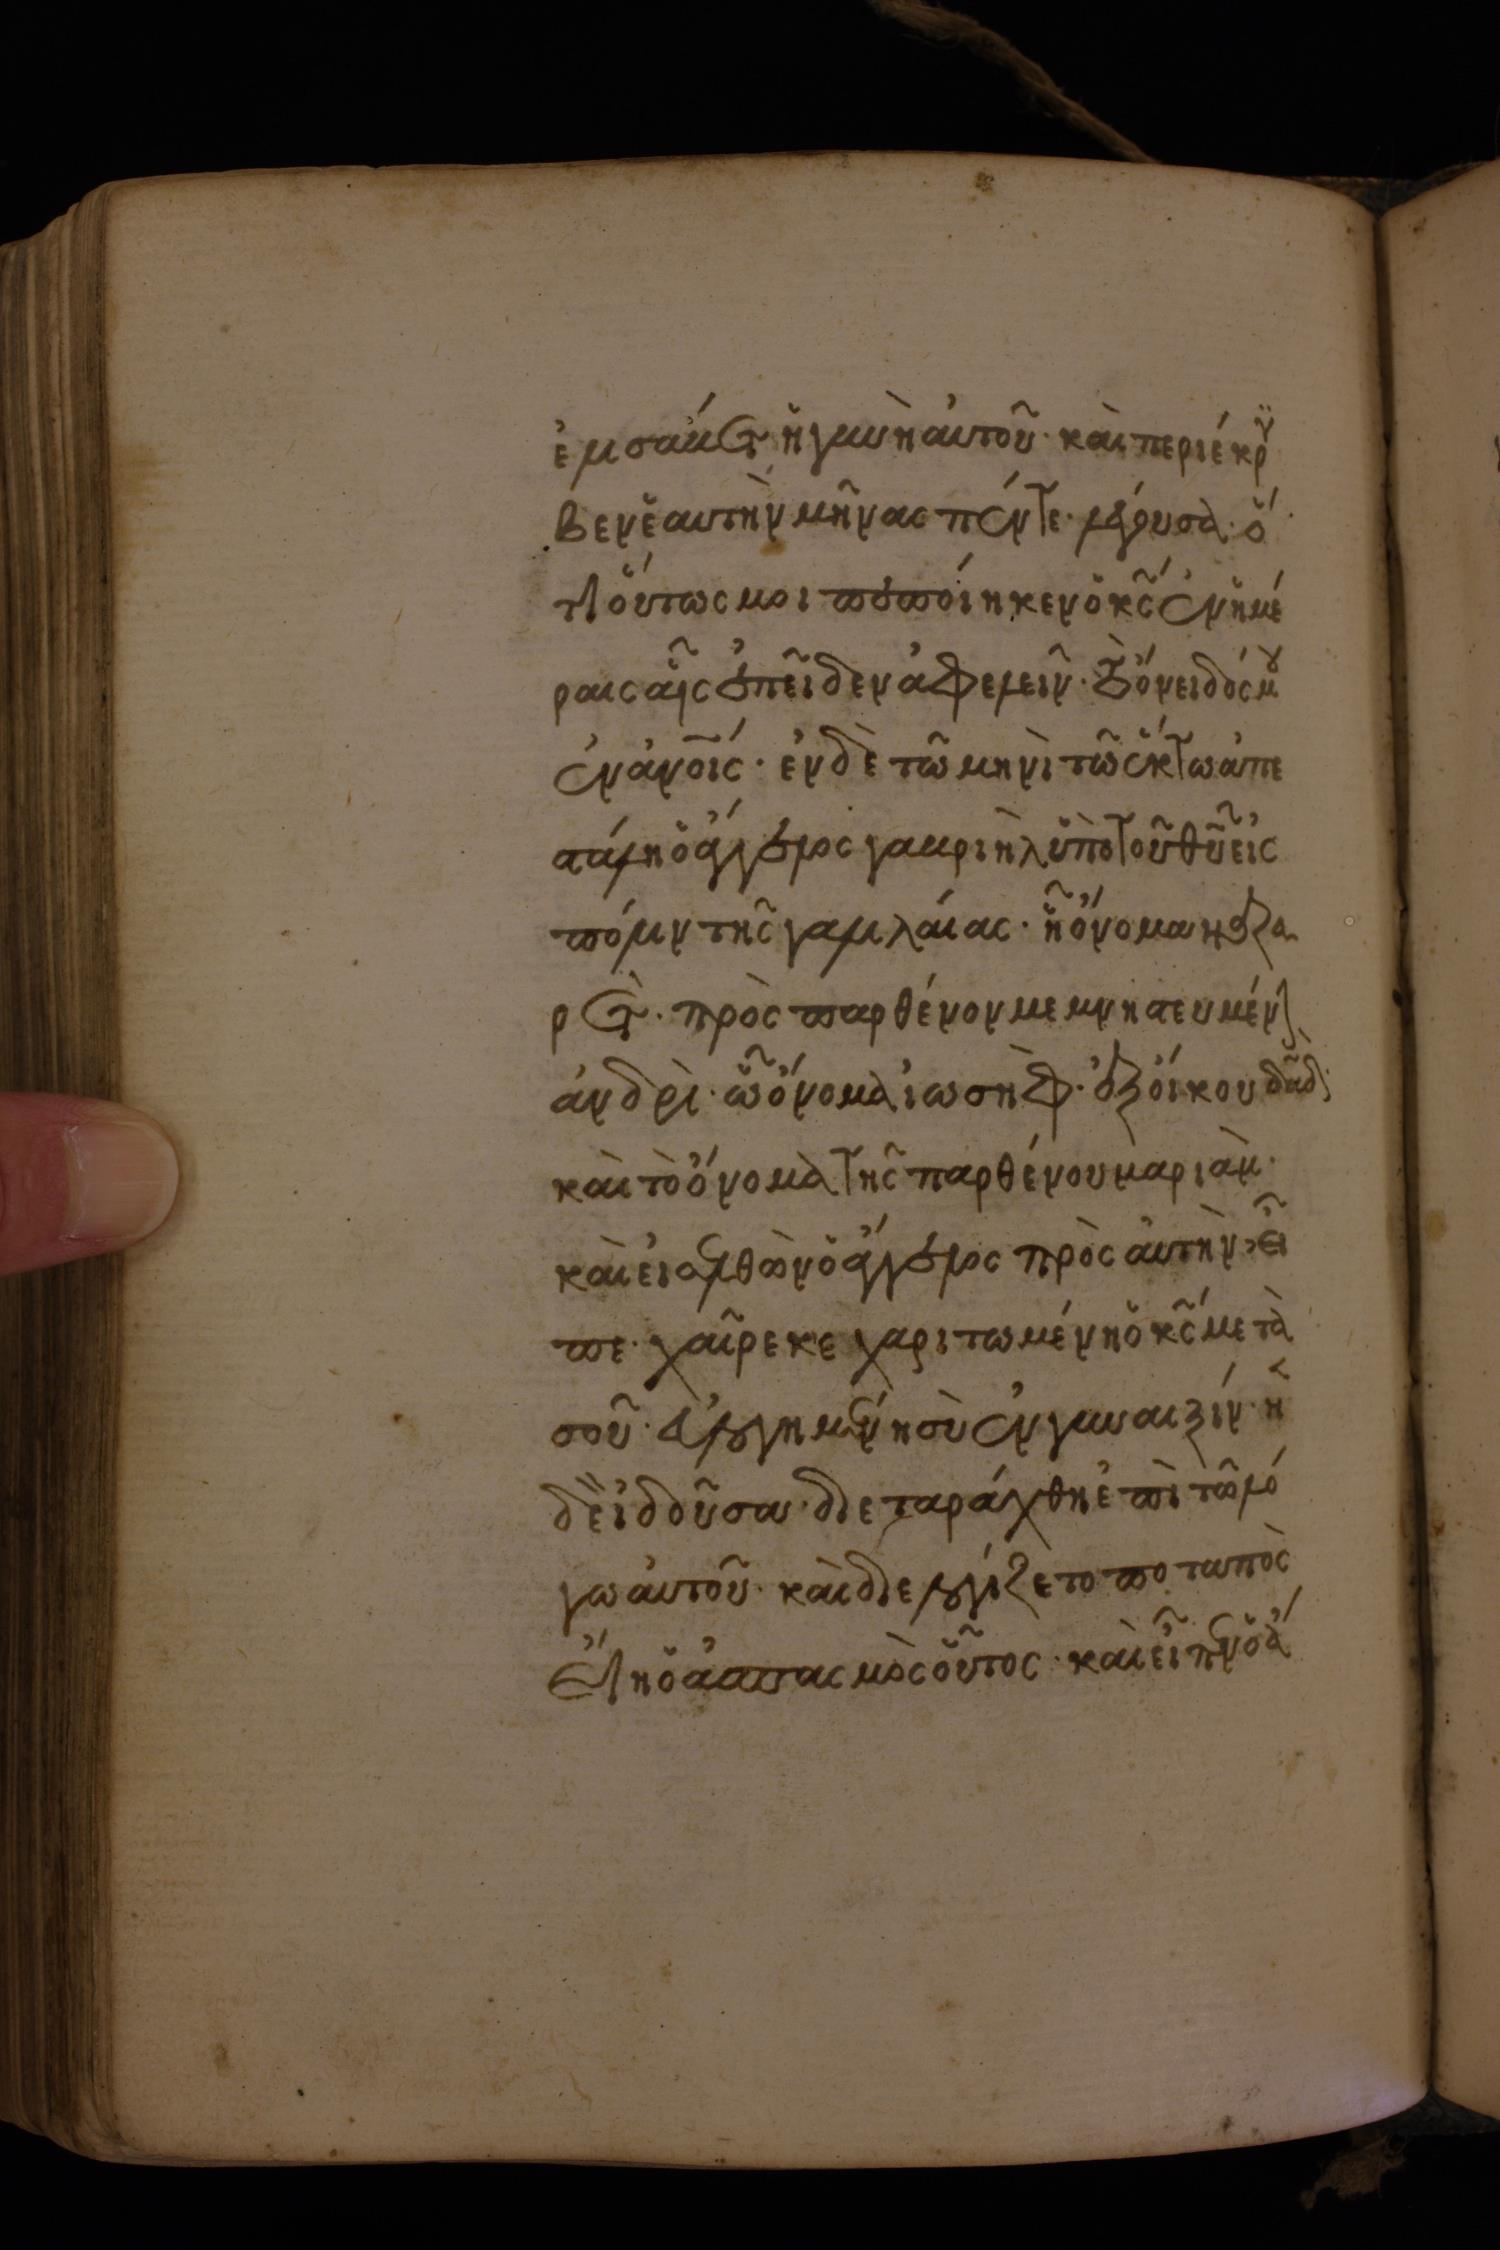 ἐλισάβετ ἡ γυνὴ αὐτοῦ· καὶ περιέκρυ
βεν ἑαυτὴν μῆνας πέντε· λέγουσα· ὅ
τι οὕτως μοι πεποίηκεν ὁ κ̅ς̅ ἐν ἡμέ
ραις αἷς ἐπεῖδεν ἀφελεῖν· τὸ ὄνειδός μου
ἐν ἀν̅οις· ἐν δὲ τῶ μηνὶ τῶ ἕκτω ἀπε
στάλη ὁ ἄγγελος γαβριὴλ ὑπὸ τοῦ θ̅υ̅ εἰς
πόλιν τῆς γαλιλαίας· ἧ ὄνομα ναζα
ρέτ· πρὸς παρθένον μεμνηστευμένην
ἀνδρὶ· ὧ ὄνομα ἰωσὴφ· ἐξ οἴκου δα̅δ·
καὶ τὸ ὄνομα τῆς παρθένου μαριὰμ·
καὶ εἰσελθὼν ὁ ἄγγελος πρὸς αὐτὴν εἶ
πε· χαῖρε κεχαριτωμένη ὁ κ̅ς̅ μετὰ
σοῦ· εὐλογημένη σὺ ἐν γυναιξίν· ἡ
δὲ ἰδοῦσα· διεταράχθη ἐπὶ τῶ λό
γω αὐτοῦ· καὶ διελογίζετο ποταπὸς
εἴη ὁ ἀσπασμὸς οὗτος· καὶ εἶπεν ὁ ἄ